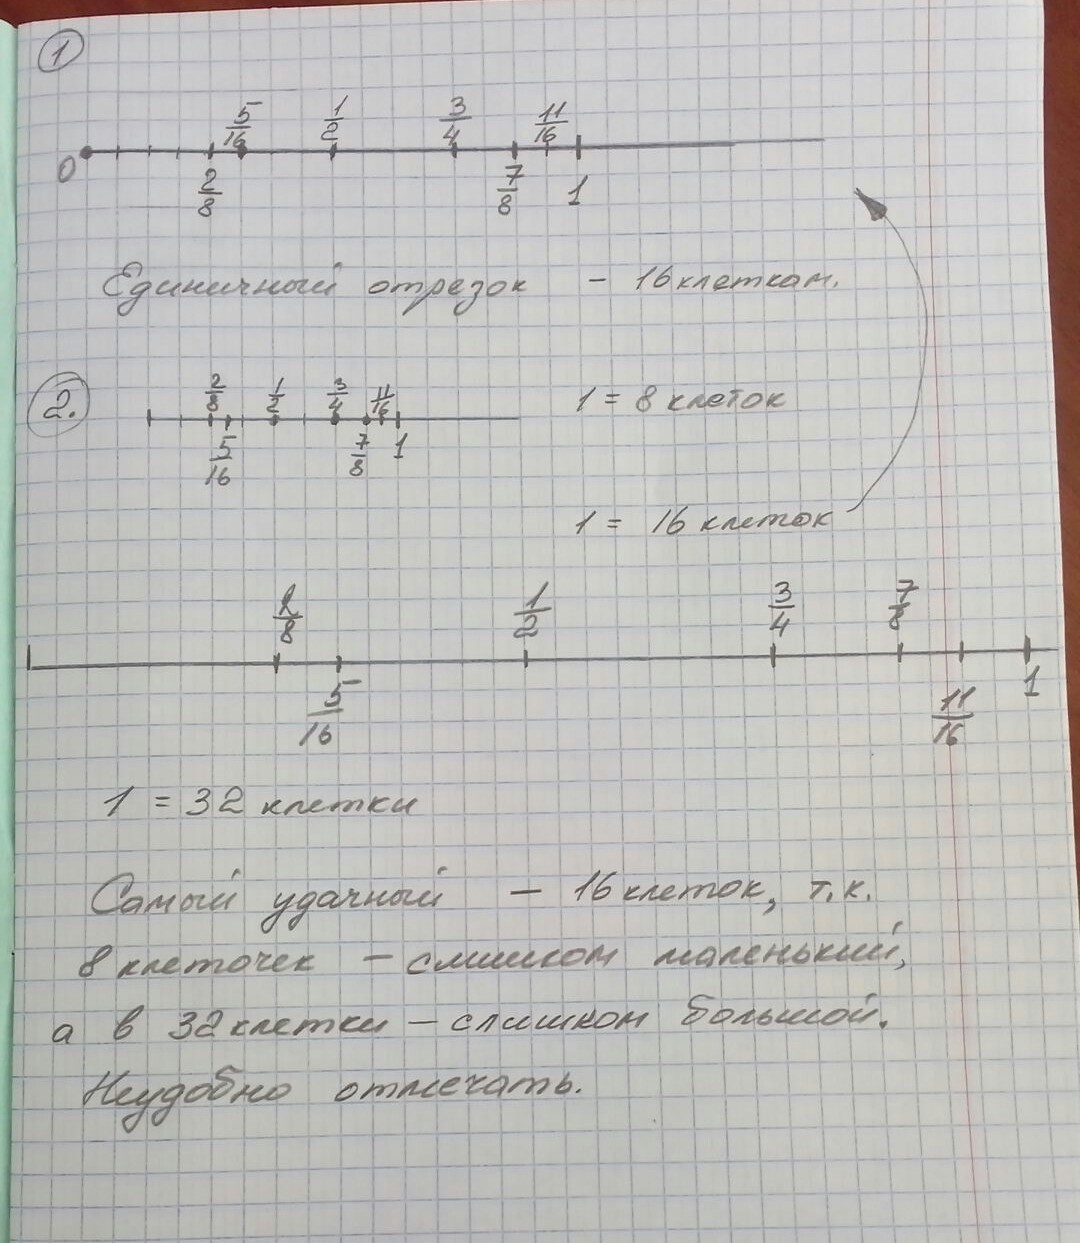 1
5/16 1/2 3/4 11/16
0 2/8 7/8 1
Единичный отрезок - 16 клеткам.
2.
2/8 1/2 3/4 11/16
5/16 7/8 1
1 = 8 клеток
1 = 16 клеток
2/8 1/2 3/4 7/8
5/16 11/16 1
1 = 32 клетки
Самый удачный - 16 клеток, т.к.
8 клеточек - слишком маленький,
а в 32 клетки - слишком большой.
Неудобно отмечать.